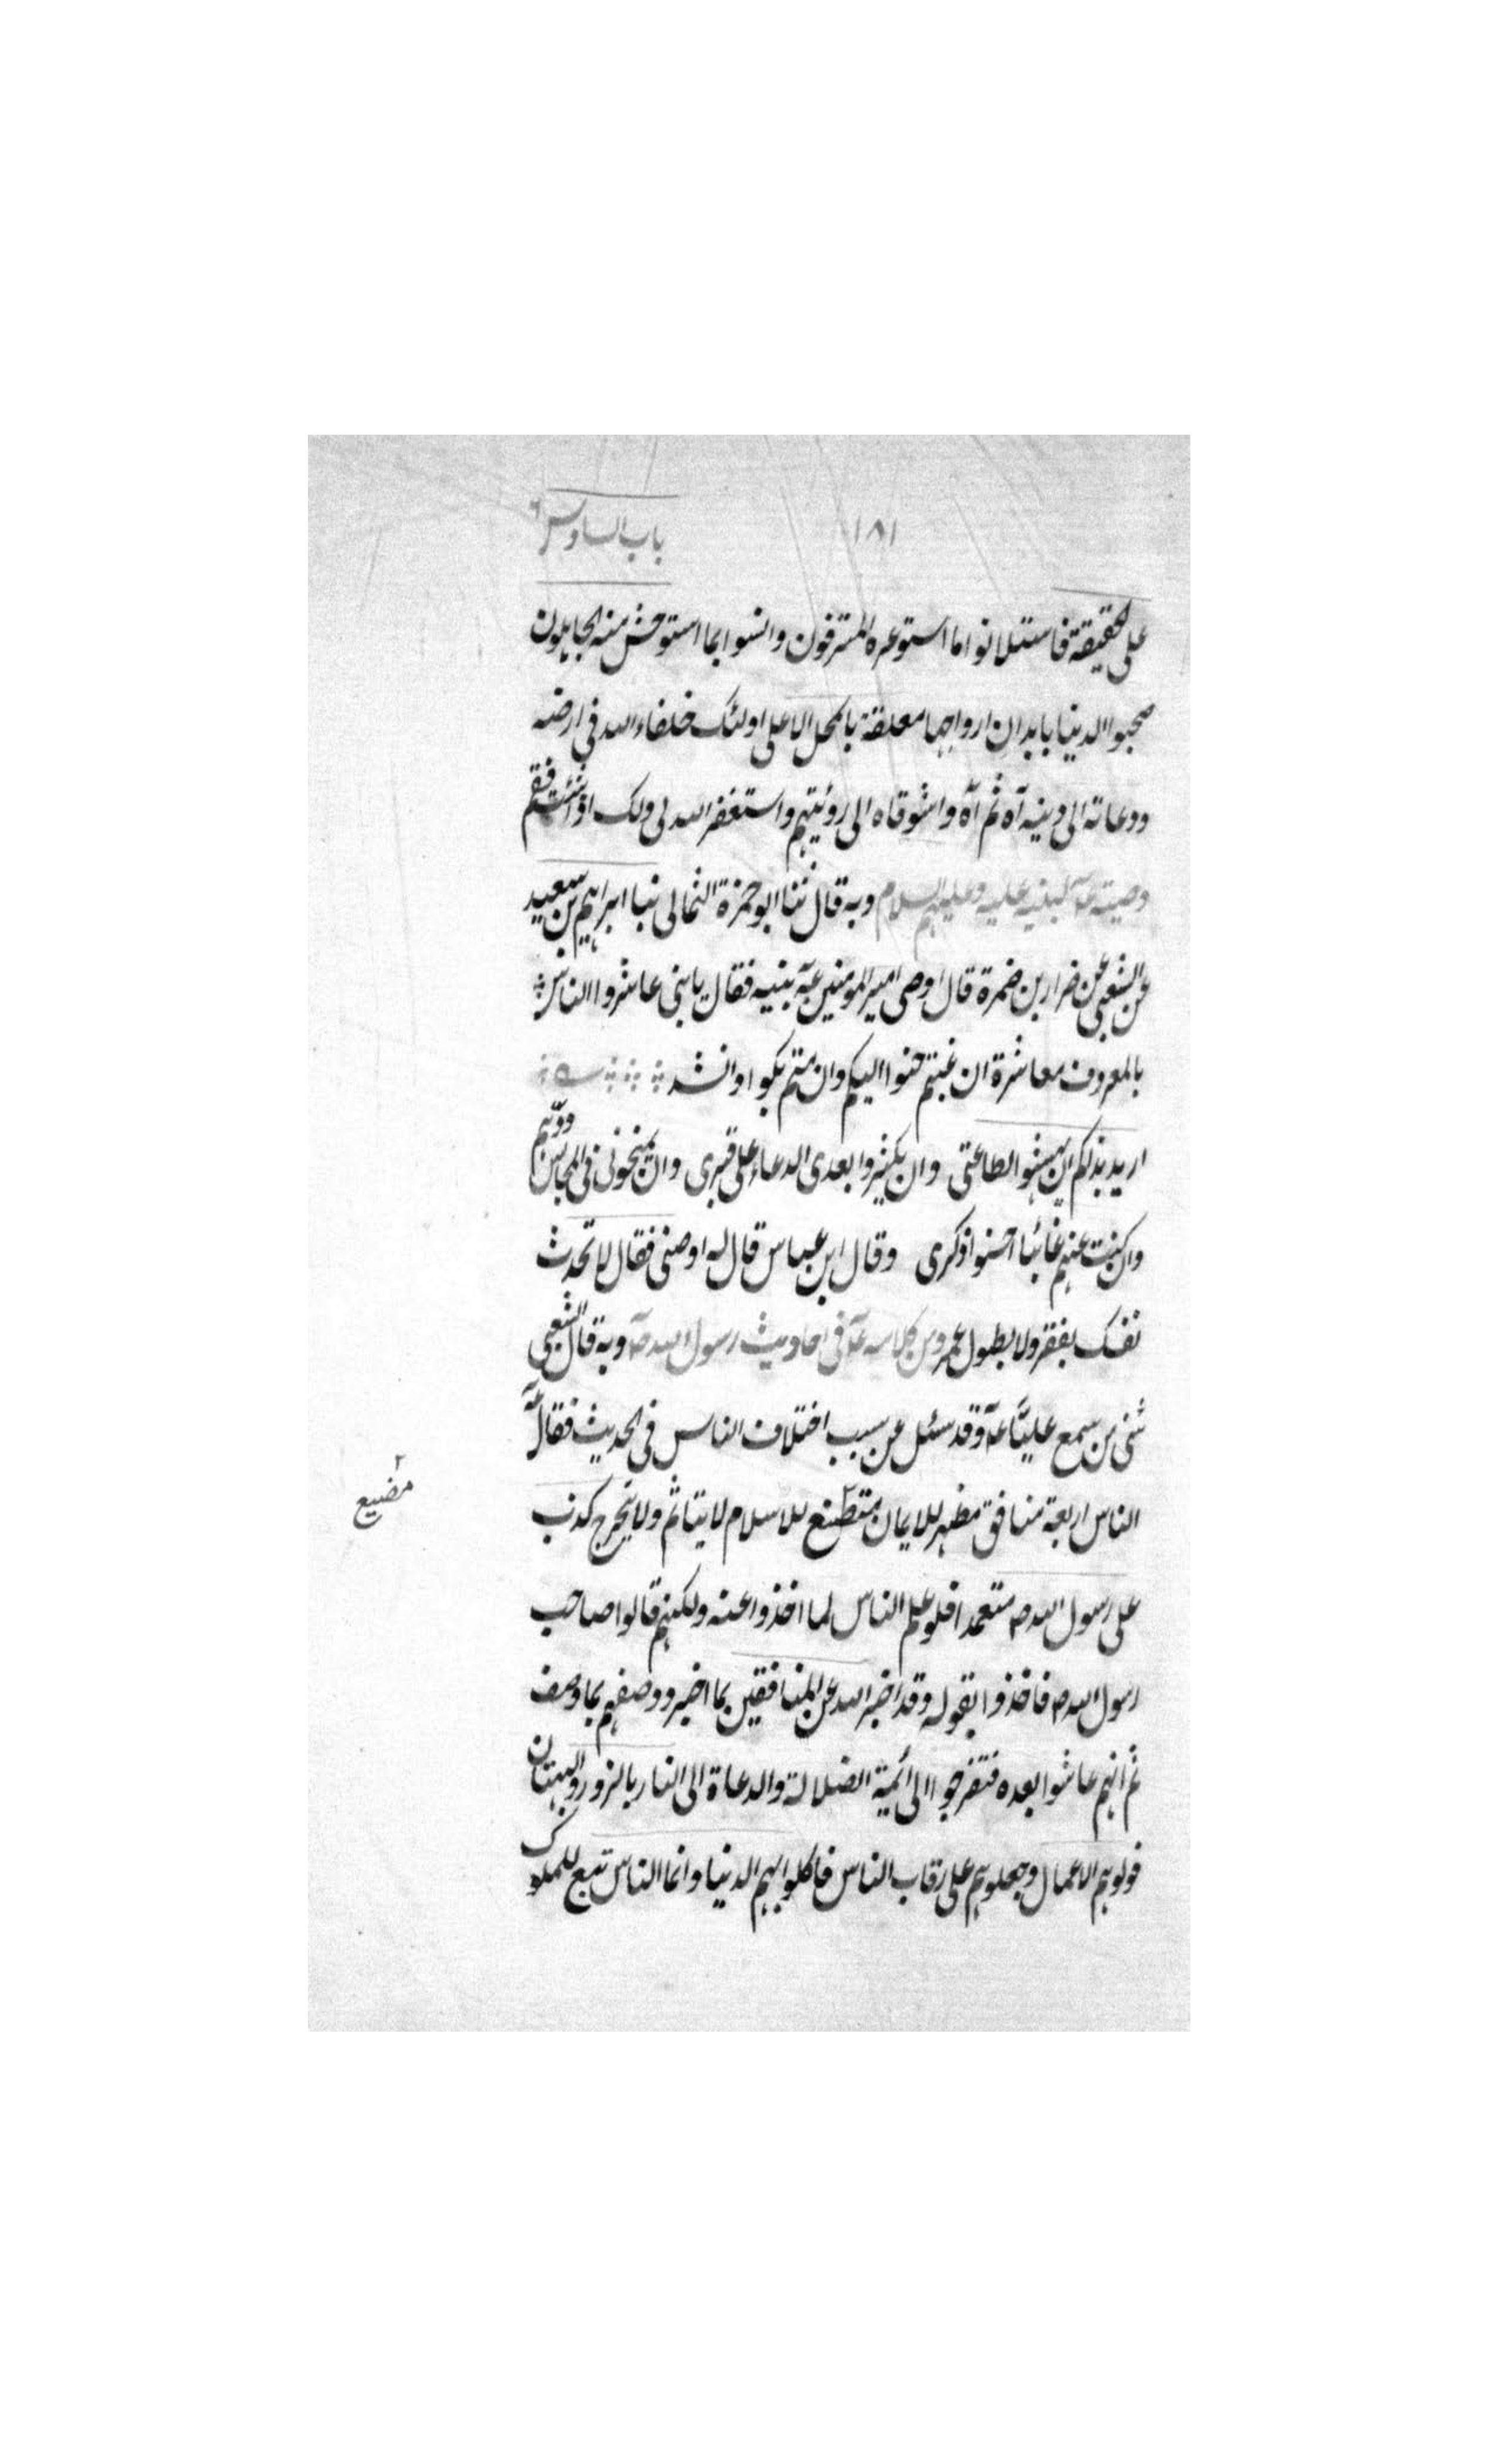 ١٨١
باب السادس
على الحقيقة فاستلانوا ما استوعره المترفون وانسوا بما استوحش منه الجاهلون
صحبوا الدنيا بابدان ارواحها معلقة بالمحل الاعلى اولئك خلفاء الله فى ارضه
ودعاته الى دينه آه ثم آه واشوقاه الى رؤيتهم واستغفر الله لى ولك اذا شئت فقم
وصيته عَ لبنيه عليه وعليهم السلام وبه قال ثنا ابو حمزة الثمالى نبا ابراهيم بن سعيد
عن الشعبى عن ضرار بن ضمرة قال اوصى امير المومنين عَ بنيه فقال يا بنى عاشروا الناس
بالمعروف معاشرة ان غبتم حنوا اليكم وان متم بكوا وانشد
اريد بذلكم ان يهشوا لطاعتى وان يكثروا بعدى الدعاء على قبرى وان يمنحونى فى المجالس ودهم
وان كنت عنهم غائبا احسنوا ذكرى وقال ابن عباس قال له اوصنى فقال لا تحدث
نفسك بفقر ولا بطول عمر ومن كلامه عَ فى احاديث رسول الله صَ وبه قال الشعبى
ثنى من سمع عليًّا عَ وقد سئل عن سبب اختلاف الناس فى الحديث فقال عَ
الناس اربعة منافق مظهر للايمان متصنع للاسلام لا يتاثم ولا يتحرج كذب
مضيع
على رسول الله ص متعمدا فلو علم الناس لما اخذوا عنه ولكنهم قالوا صاحب
رسول الله ص فاخذوا بقوله وقد اخبر الله عن المنافقين بما اخبر ووصفهم بما وصف
ثم انهم عاشوا بعده فتقرجوا الى ائمة الضلالة والدعاة الى النار بالزور والبهتان
فولوهم الاعمال وجعلوهم على رقاب الناس فاكلوا بهم الدنيا وانما الناس تبع للملوك